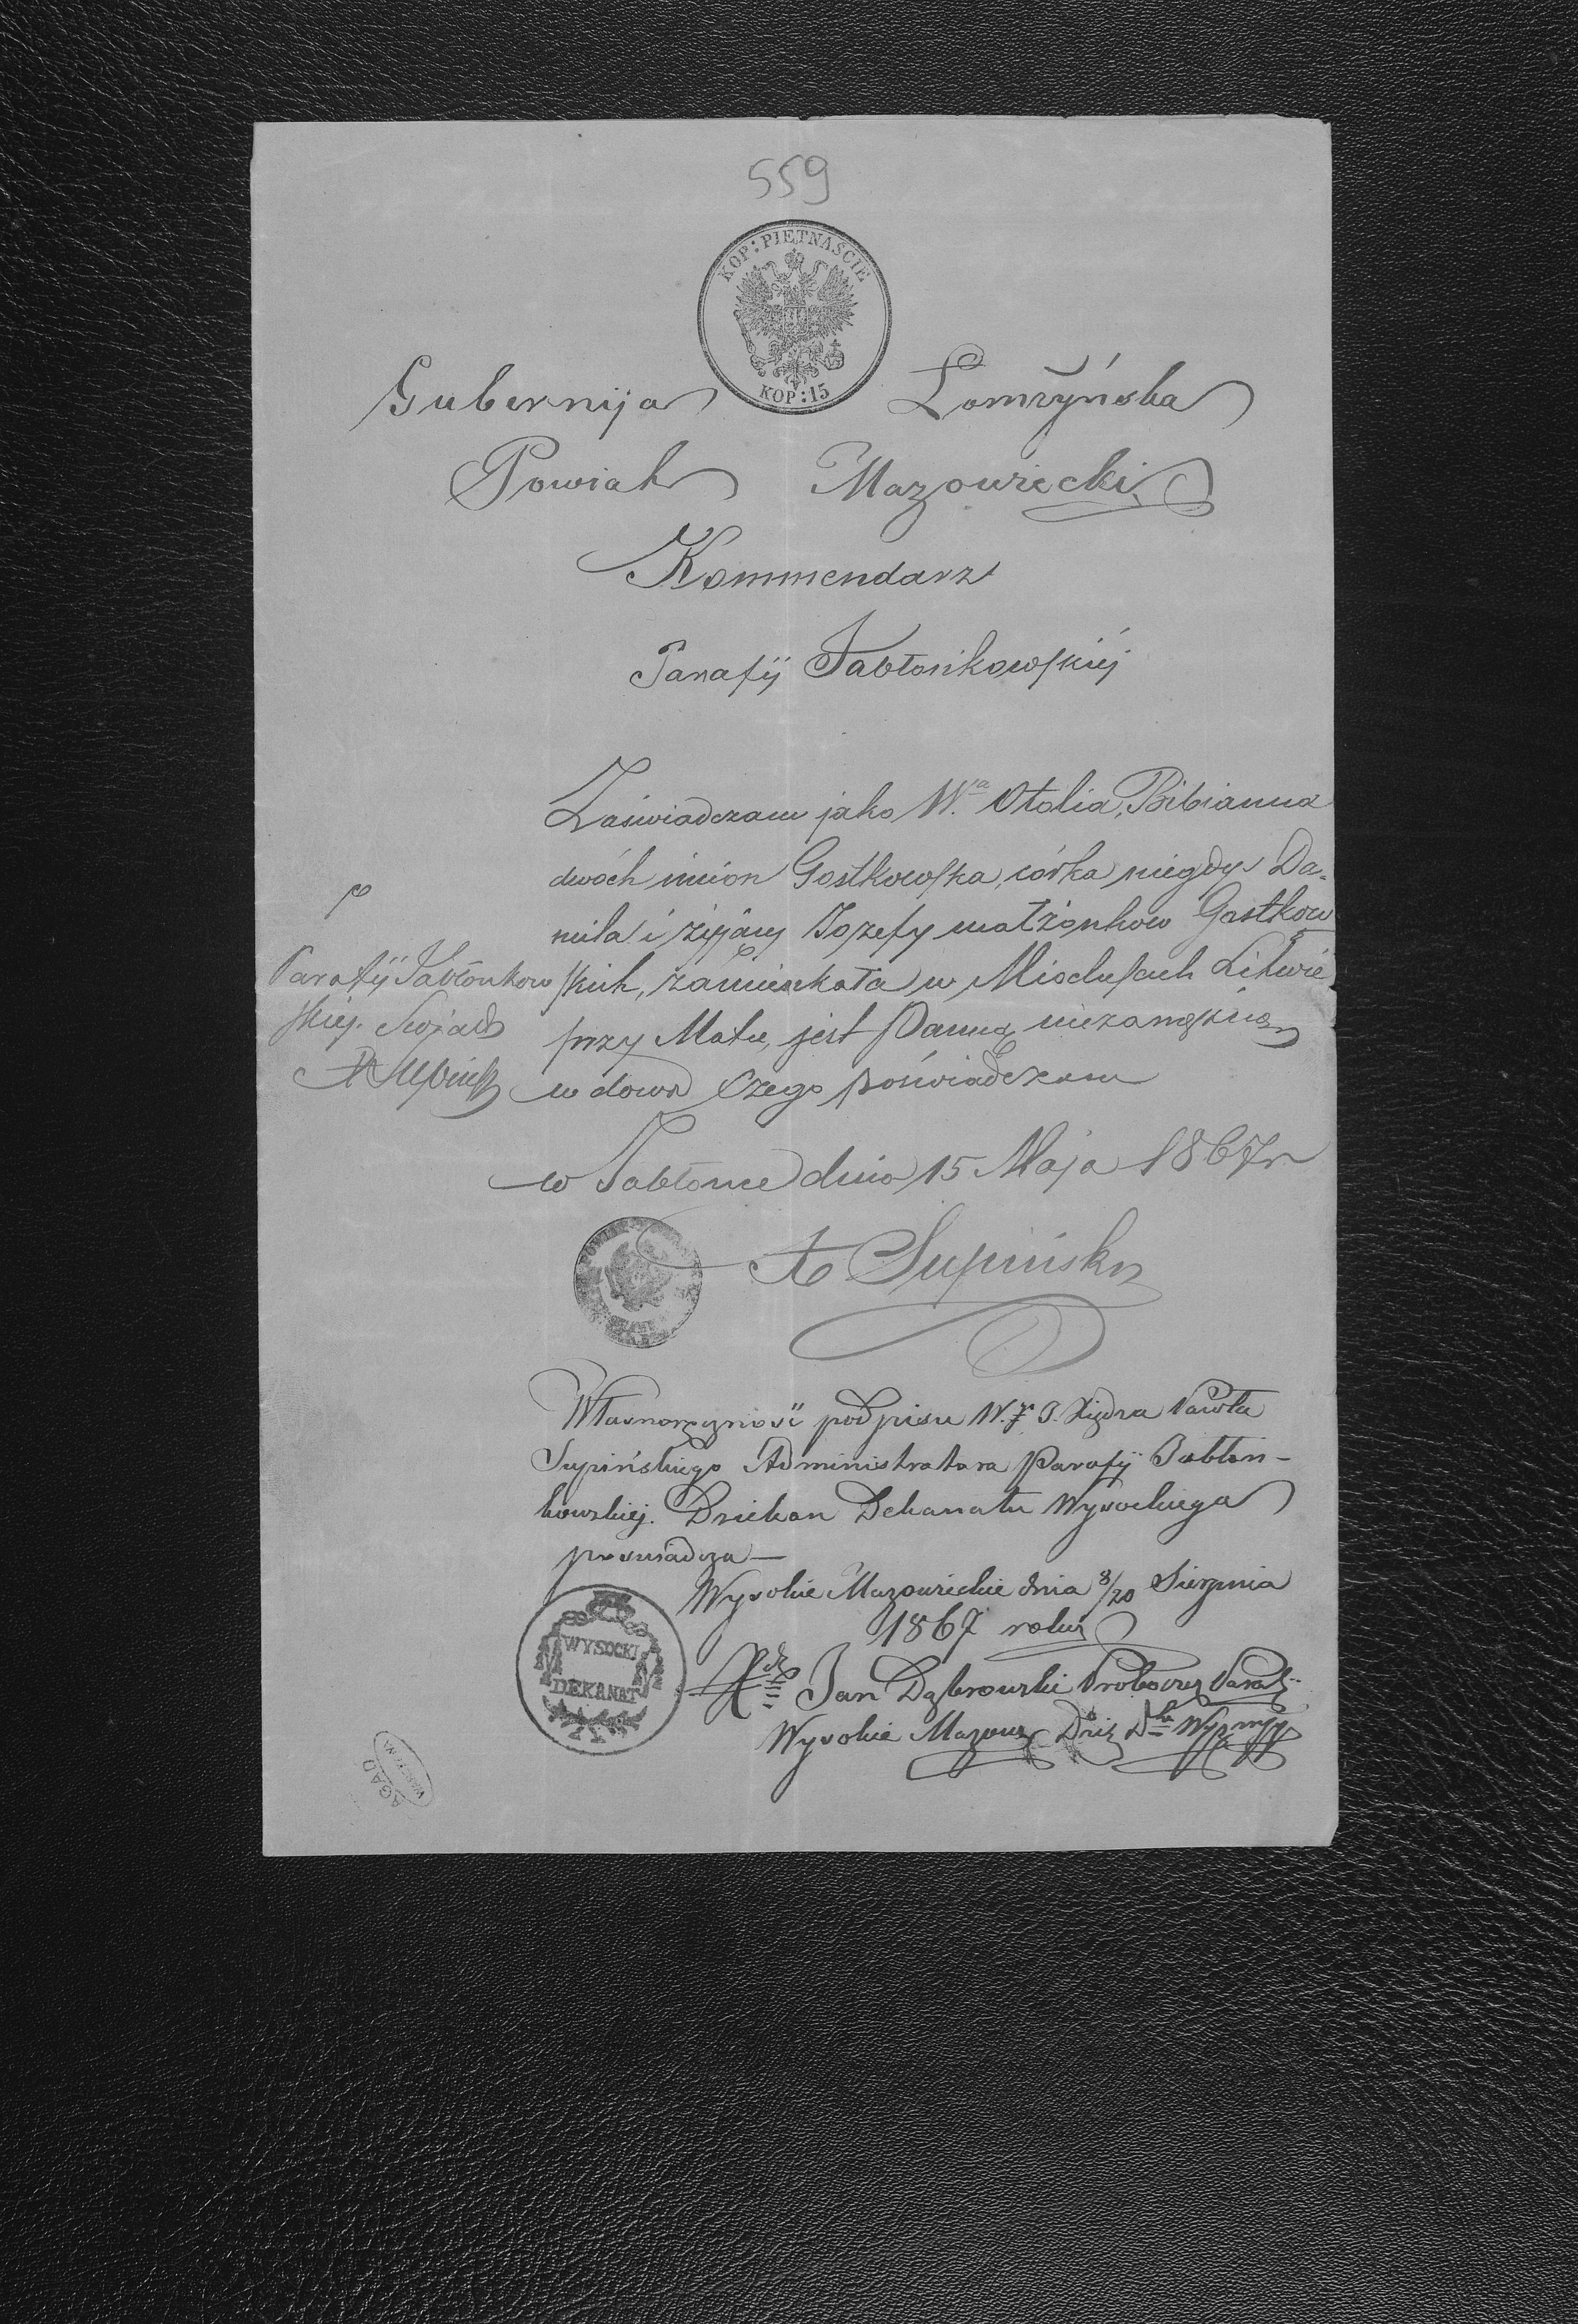 559
KOP: PIĘTNAŚCIE
KOP: 15
Gubernija Łomżyńska
Powiat Mazowiecki
Kommendarz
Parafij Jabłonkowskiéj
Zaświadczam jako W.a Otolia, Bibianna
dwóch imion Gostkowska, córka niegdyś Da-
nila i żijącej Jozefy małżonkow Gostkow
skich, zamieszkała w Miodusach Litwie
przy Matce, jest Panną niezamężną
w dowód czego poświadczam
w Jabłonce dnia 15 Maja 1867 r
Parafij Jabłonkow
skiej.
A Supiński
Własnoręczność podpisu W. J. X. Księdza Pawła
Supińskiego Administratora Parafij Jabłon-
kowskiej. Dziekan Dekanatu Wysockiego
poswiadcza —
Wysokie Mazowieckie dnia 8/20 Sierpnia
1867 roku
WYSOCKI
DEKANAT
Jan Dąbrowski Proboszcz Paraf:
Wysokie Mazow
AGAD